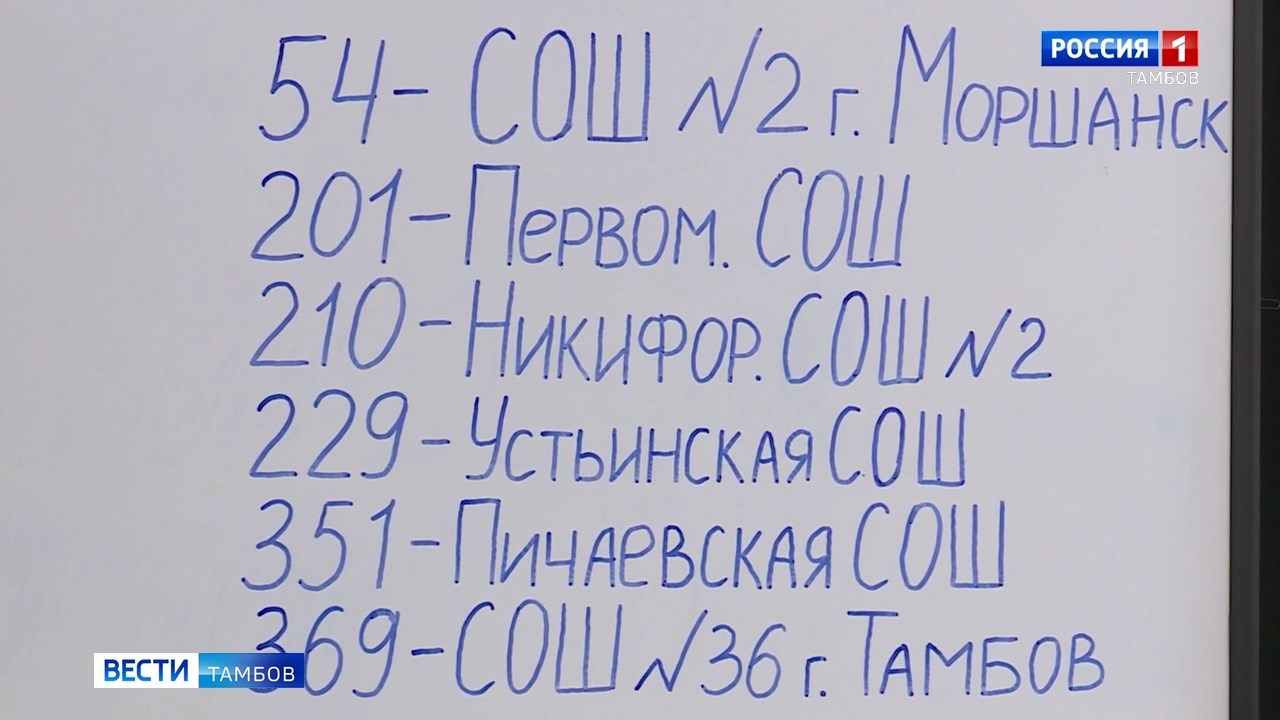 РОССИЯ 1
ТАМБОВ
54 - СОШ N2 г. МОРШАНСК
201 - ПЕРВОМ. СОШ
210 - НИКИФОР. СОШ N2
229 - УСТЬИНСКАЯ СОШ
351 - ПИЧАЕВСКАЯ СОШ
369 - СОШ N36 г. ТАМБОВ
ВЕСТИ ТАМБОВ